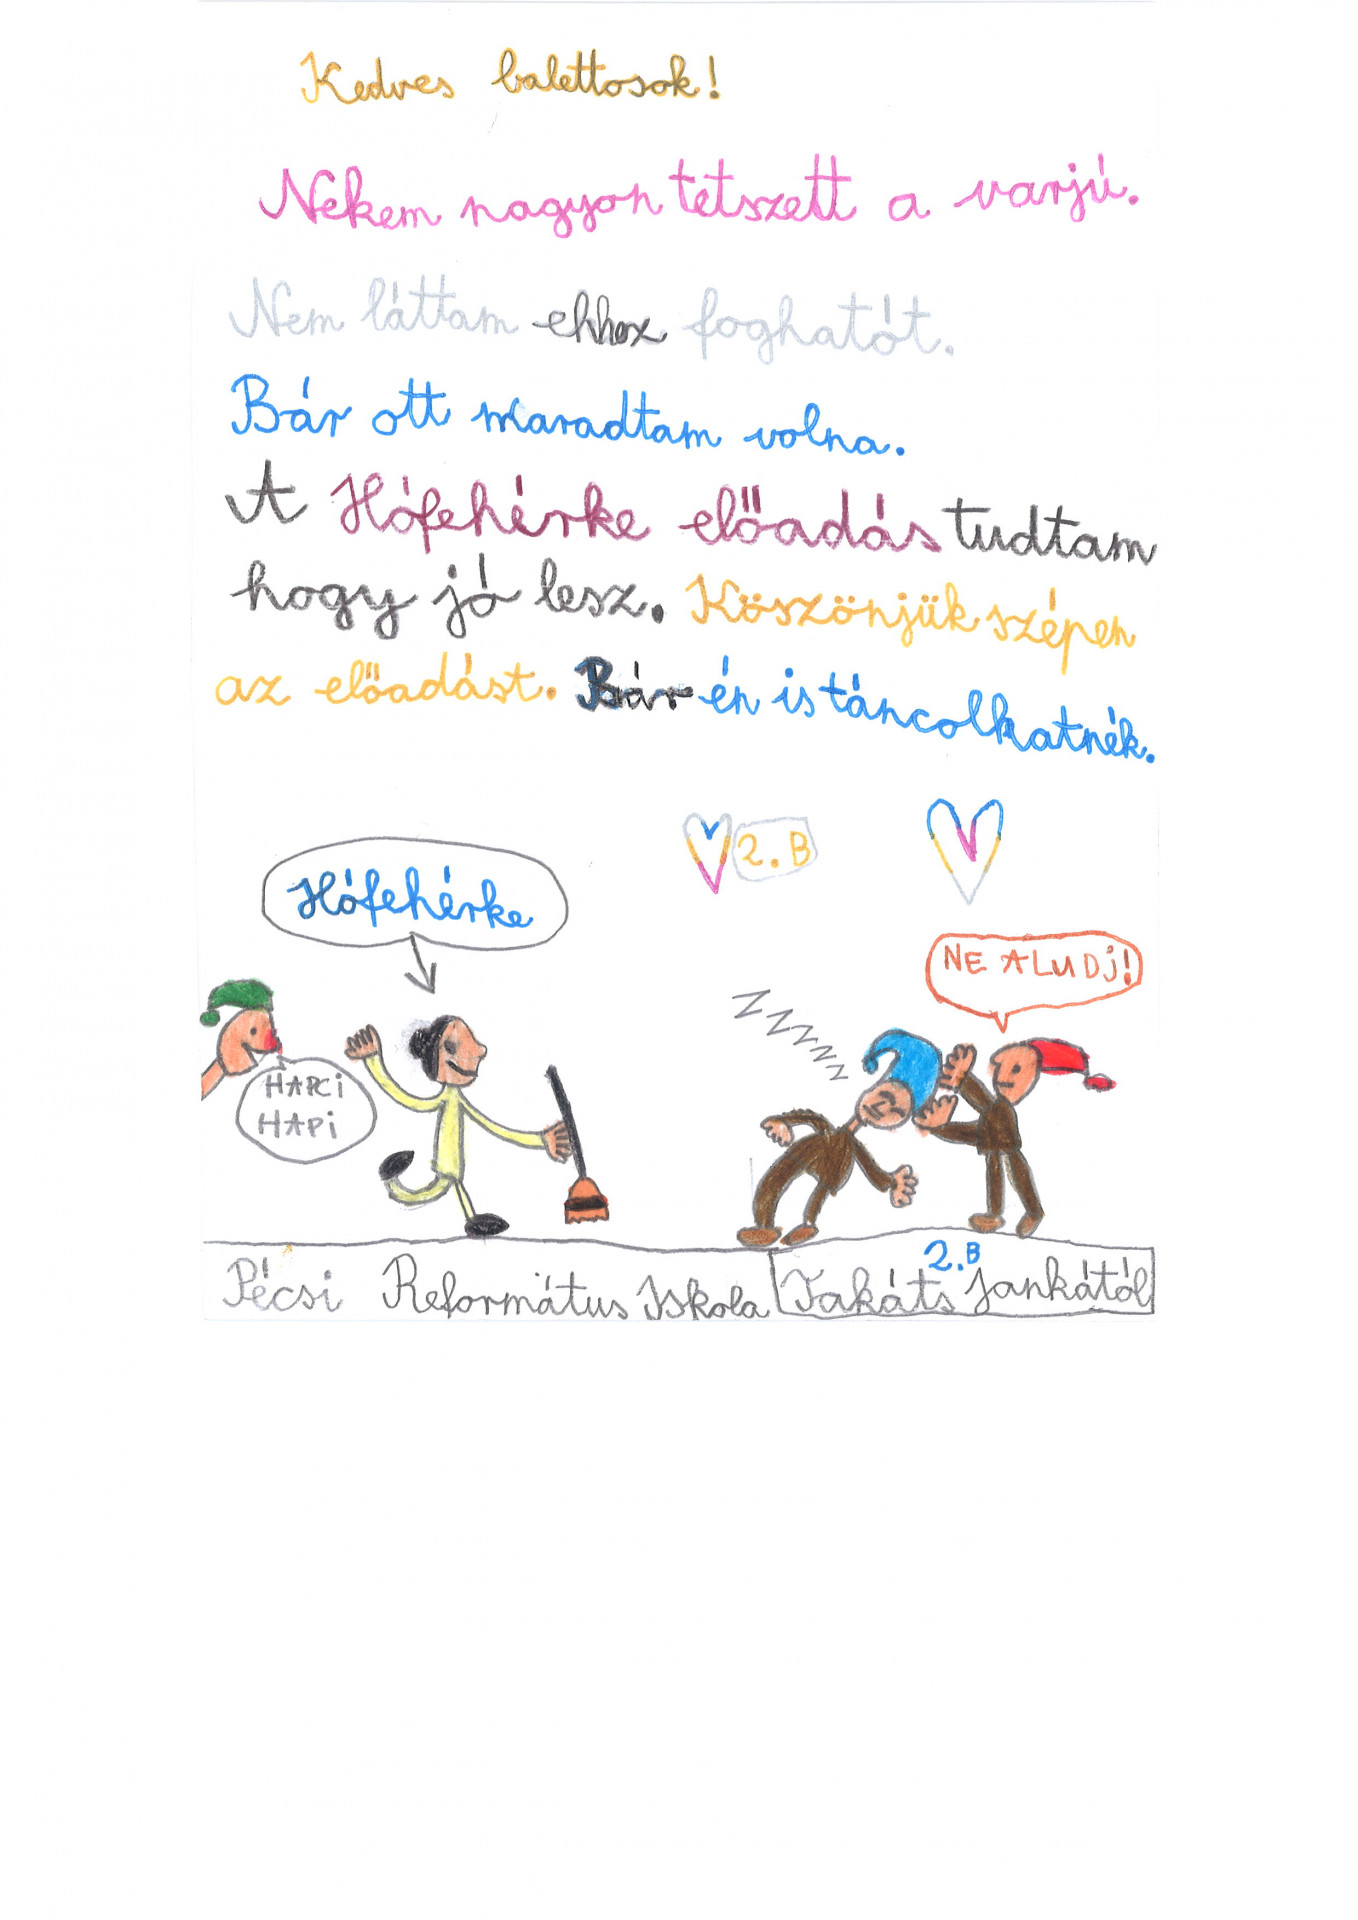 Kedves balettosok!
Nekem nagyon tetszett a varjú.
Nem láttam ehhez foghatót.
Bár ott maradtam volna.
A Hófehérke előadás tudtam
hogy jó lesz. Köszönjük szépen
az előadást. Bár én is táncolhatnék.
2.B
Hófehérke
NE ALUDj!
ZZZZZZZ
HAPCi
HAPi
2.B
Pécsi Református Iskola Takáts Jankától